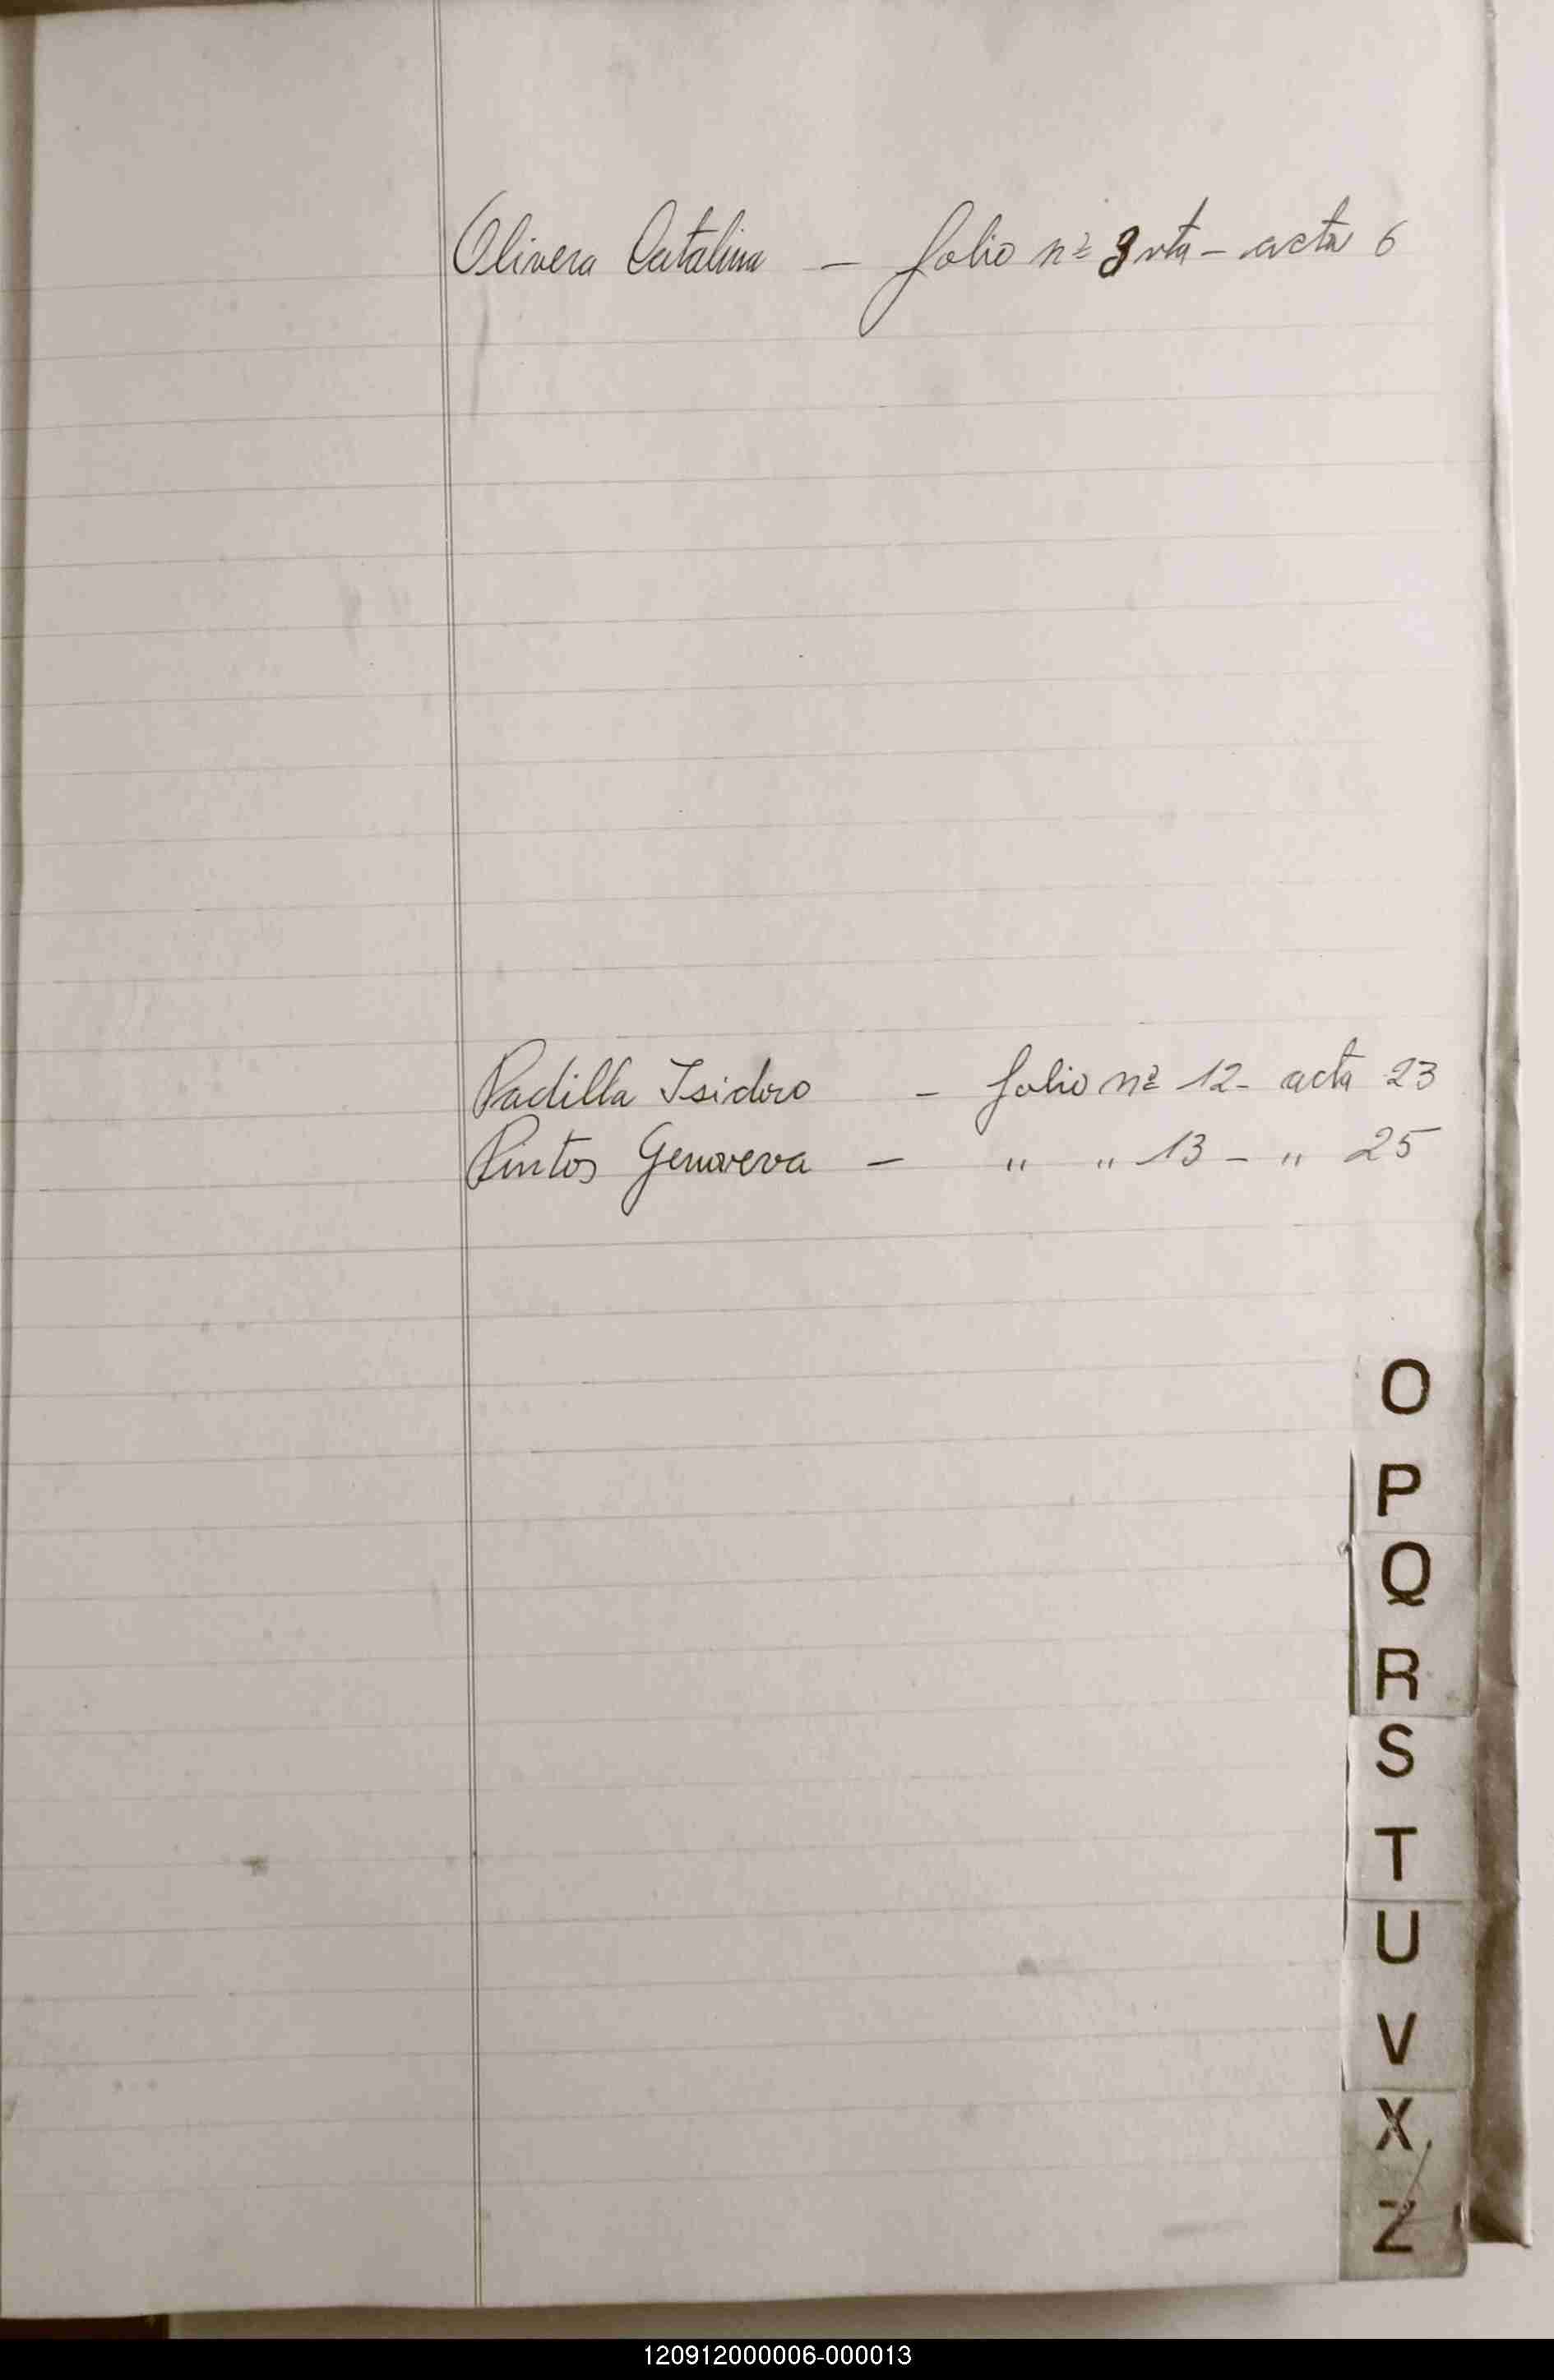 Olivera Catalina — folio nº 3 vta — acta 6
Padilla Isidoro — folio nº 12 — acta 23
Pintos Genoveva — " " 13 — " 25
O
P
Q
R
S
T
U
V
X
Z
120912000006-000013